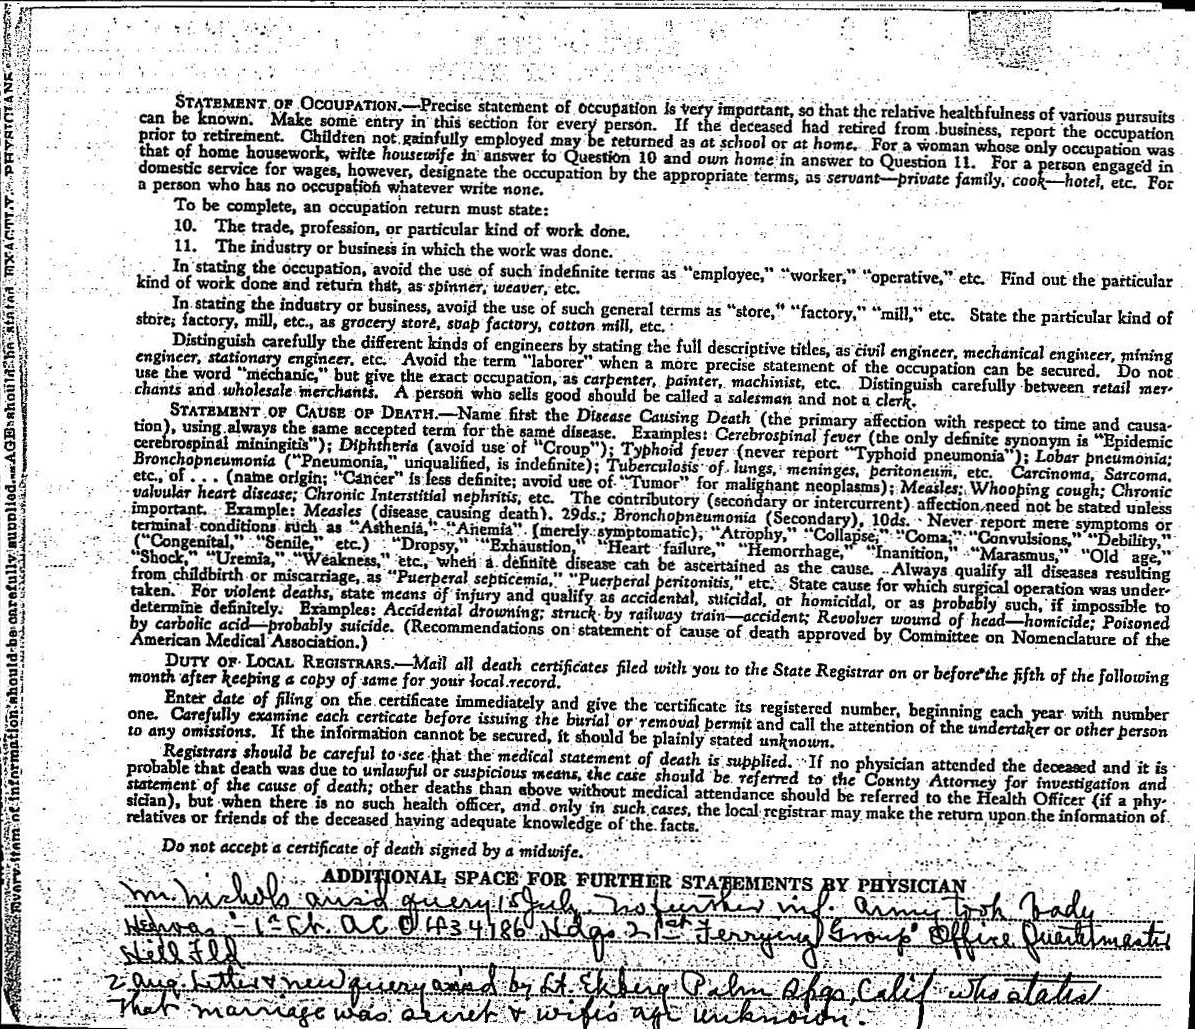 STATEMENT OF OCCUPATION.—Precise statement of occupation is very important, so that the relative healthfulness of various pursuits
can be known. Make some entry in this section for every person. If the deceased had retired from business, report the occupation
prior to retirement. Children not gainfully employed may be returned as at school or at home. For a woman whose only occupation was
that of home housework, write housewife in answer to Question 10 and own home in answer to Question 11. For a person engaged in
domestic service for wages, however, designate the occupation by the appropriate terms, as servant—private family, cook—hotel, etc. For
a person who has no occupation whatever write none.
To be complete, an occupation return must state:
10. The trade, profession, or particular kind of work done.
11. The industry or business in which the work was done.
In stating the occupation, avoid the use of such indefinite terms as "employee," "worker," "operative," etc. Find out the particular
kind of work done and return that, as spinner, weaver, etc.
In stating the industry or business, avoid the use of such general terms as "store," "factory," "mill," etc. State the particular kind of
store, factory, mill, etc., as grocery store, soap factory, cotton mill, etc.
Distinguish carefully the different kinds of engineers by stating the full descriptive titles, as civil engineer, mechanical engineer, mining
engineer, stationary engineer, etc. Avoid the term "laborer" when a more precise statement of the occupation can be secured. Do not
use the word "mechanic," but give the exact occupation, as carpenter, painter, machinist, etc. Distinguish carefully between retail mer-
chants and wholesale merchants. A person who sells good should be called a salesman and not a clerk.
STATEMENT OF CAUSE OF DEATH.—Name first the Disease Causing Death (the primary affection with respect to time and causa-
tion), using always the same accepted term for the same disease. Examples: Cerebrospinal fever (the only definite synonym is "Epidemic
cerebrospinal miningitis"); Diphtheria (avoid use of "Croup"); Typhoid fever (never report "Typhoid pneumonia"); Lobar pneumonia;
Bronchopneumonia ("Pneumonia," unqualified, is indefinite); Tuberculosis of lungs, meninges, peritoneum, etc. Carcinoma, Sarcoma,
etc., of . . . (name origin; "Cancer" is less definite; avoid use of "Tumor" for malignant neoplasms); Measles; Whooping cough; Chronic
valvular heart disease; Chronic Interstitial nephritis, etc. The contributory (secondary or intercurrent) affection need not be stated unless
important. Example: Measles (disease causing death), 29ds.; Bronchopneumonia (Secondary), 10ds. Never report mere symptoms or
terminal conditions such as "Asthenia," "Anemia" (merely symptomatic), "Atrophy," "Collapse," "Coma," "Convulsions," "Debility,"
("Congenital," "Senile," etc.) "Dropsy," "Exhaustion," "Heart failure," "Hemorrhage," "Inanition," "Marasmus," "Old age,"
"Shock," "Uremia," "Weakness," etc., when a definite disease can be ascertained as the cause. Always qualify all diseases resulting
from childbirth or miscarriage, as "Puerperal septicemia," "Puerperal peritonitis," etc. State cause for which surgical operation was under-
taken. For violent deaths, state means of injury and qualify as accidental, suicidal, or homicidal, or as probably such, if impossible to
determine definitely. Examples: Accidental drowning; struck by railway train—accident; Revolver wound of head—homicide; Poisoned
by carbolic acid—probably suicide. (Recommendations on statement of cause of death approved by Committee on Nomenclature of the
American Medical Association.)
DUTY OF LOCAL REGISTRARS.—Mail all death certificates filed with you to the State Registrar on or before the fifth of the following
month after keeping a copy of same for your local record.
Enter date of filing on the certificate immediately and give the certificate its registered number, beginning each year with number
one. Carefully examine each certicate before issuing the burial or removal permit and call the attention of the undertaker or other person
to any omissions. If the information cannot be secured, it should be plainly stated unknown.
Registrars should be careful to see that the medical statement of death is supplied. If no physician attended the deceased and it is
probable that death was due to unlawful or suspicious means, the case should be referred to the County Attorney for investigation and
statement of the cause of death; other deaths than above without medical attendance should be referred to the Health Officer (if a phy-
sician), but when there is no such health officer, and only in such cases, the local registrar may make the return upon the information of
relatives or friends of the deceased having adequate knowledge of the facts.
Do not accept a certificate of death signed by a midwife.
ADDITIONAL SPACE FOR FURTHER STATEMENTS BY PHYSICIAN
M. Nichols ansd query 15 July. No further inf. Army took body
He was 1st Lt. A C O 434186 Hdqs 21st Ferrying Group Office Quartermaster
Hill Fld
2 Aug. Letter & new query by Lt. Ekberg Palm Spgs, Calif who stated
that marriage was secret & wife's age unknown.
every item of information should be carefully supplied. AGE should be stated EXACTLY. PHYSICIANS